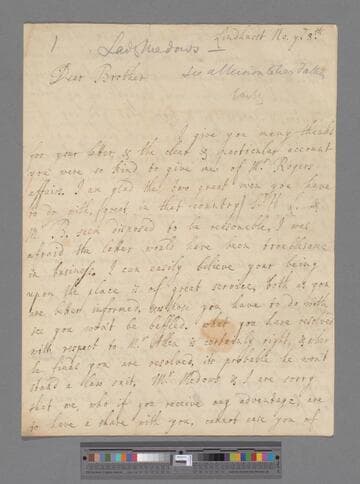 1 Lady Meadows — Lindhurst No. ye 8th
Dear Brother
I give you many thanks
for your letter, & the clear & particular account
you were so kind to give me of Mr. Rogers
affairs. I am glad the two great men you have
to do with, (great in that country)
seem disposed to be reasonable, I was
afraid the latter would have been troublesome
in business. I can easily believe your being
upon the place is of great service, both as you
are better informed, & those you have to do with
see you won't be baffled. What you have resolved
with respect to Mr. Allen is certainly right, & when
he finds you are resolved, its probable he won't
stand a law suit. Mr. Medows & I are sorry
that we, who if you receive any advantage, are
to have a share with you, cannot ease you of